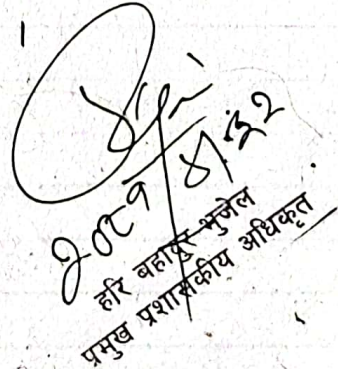 २०८१/४/३२
हरि बहादुर भुजेल
प्रमुख प्रशासकीय अधिकृत